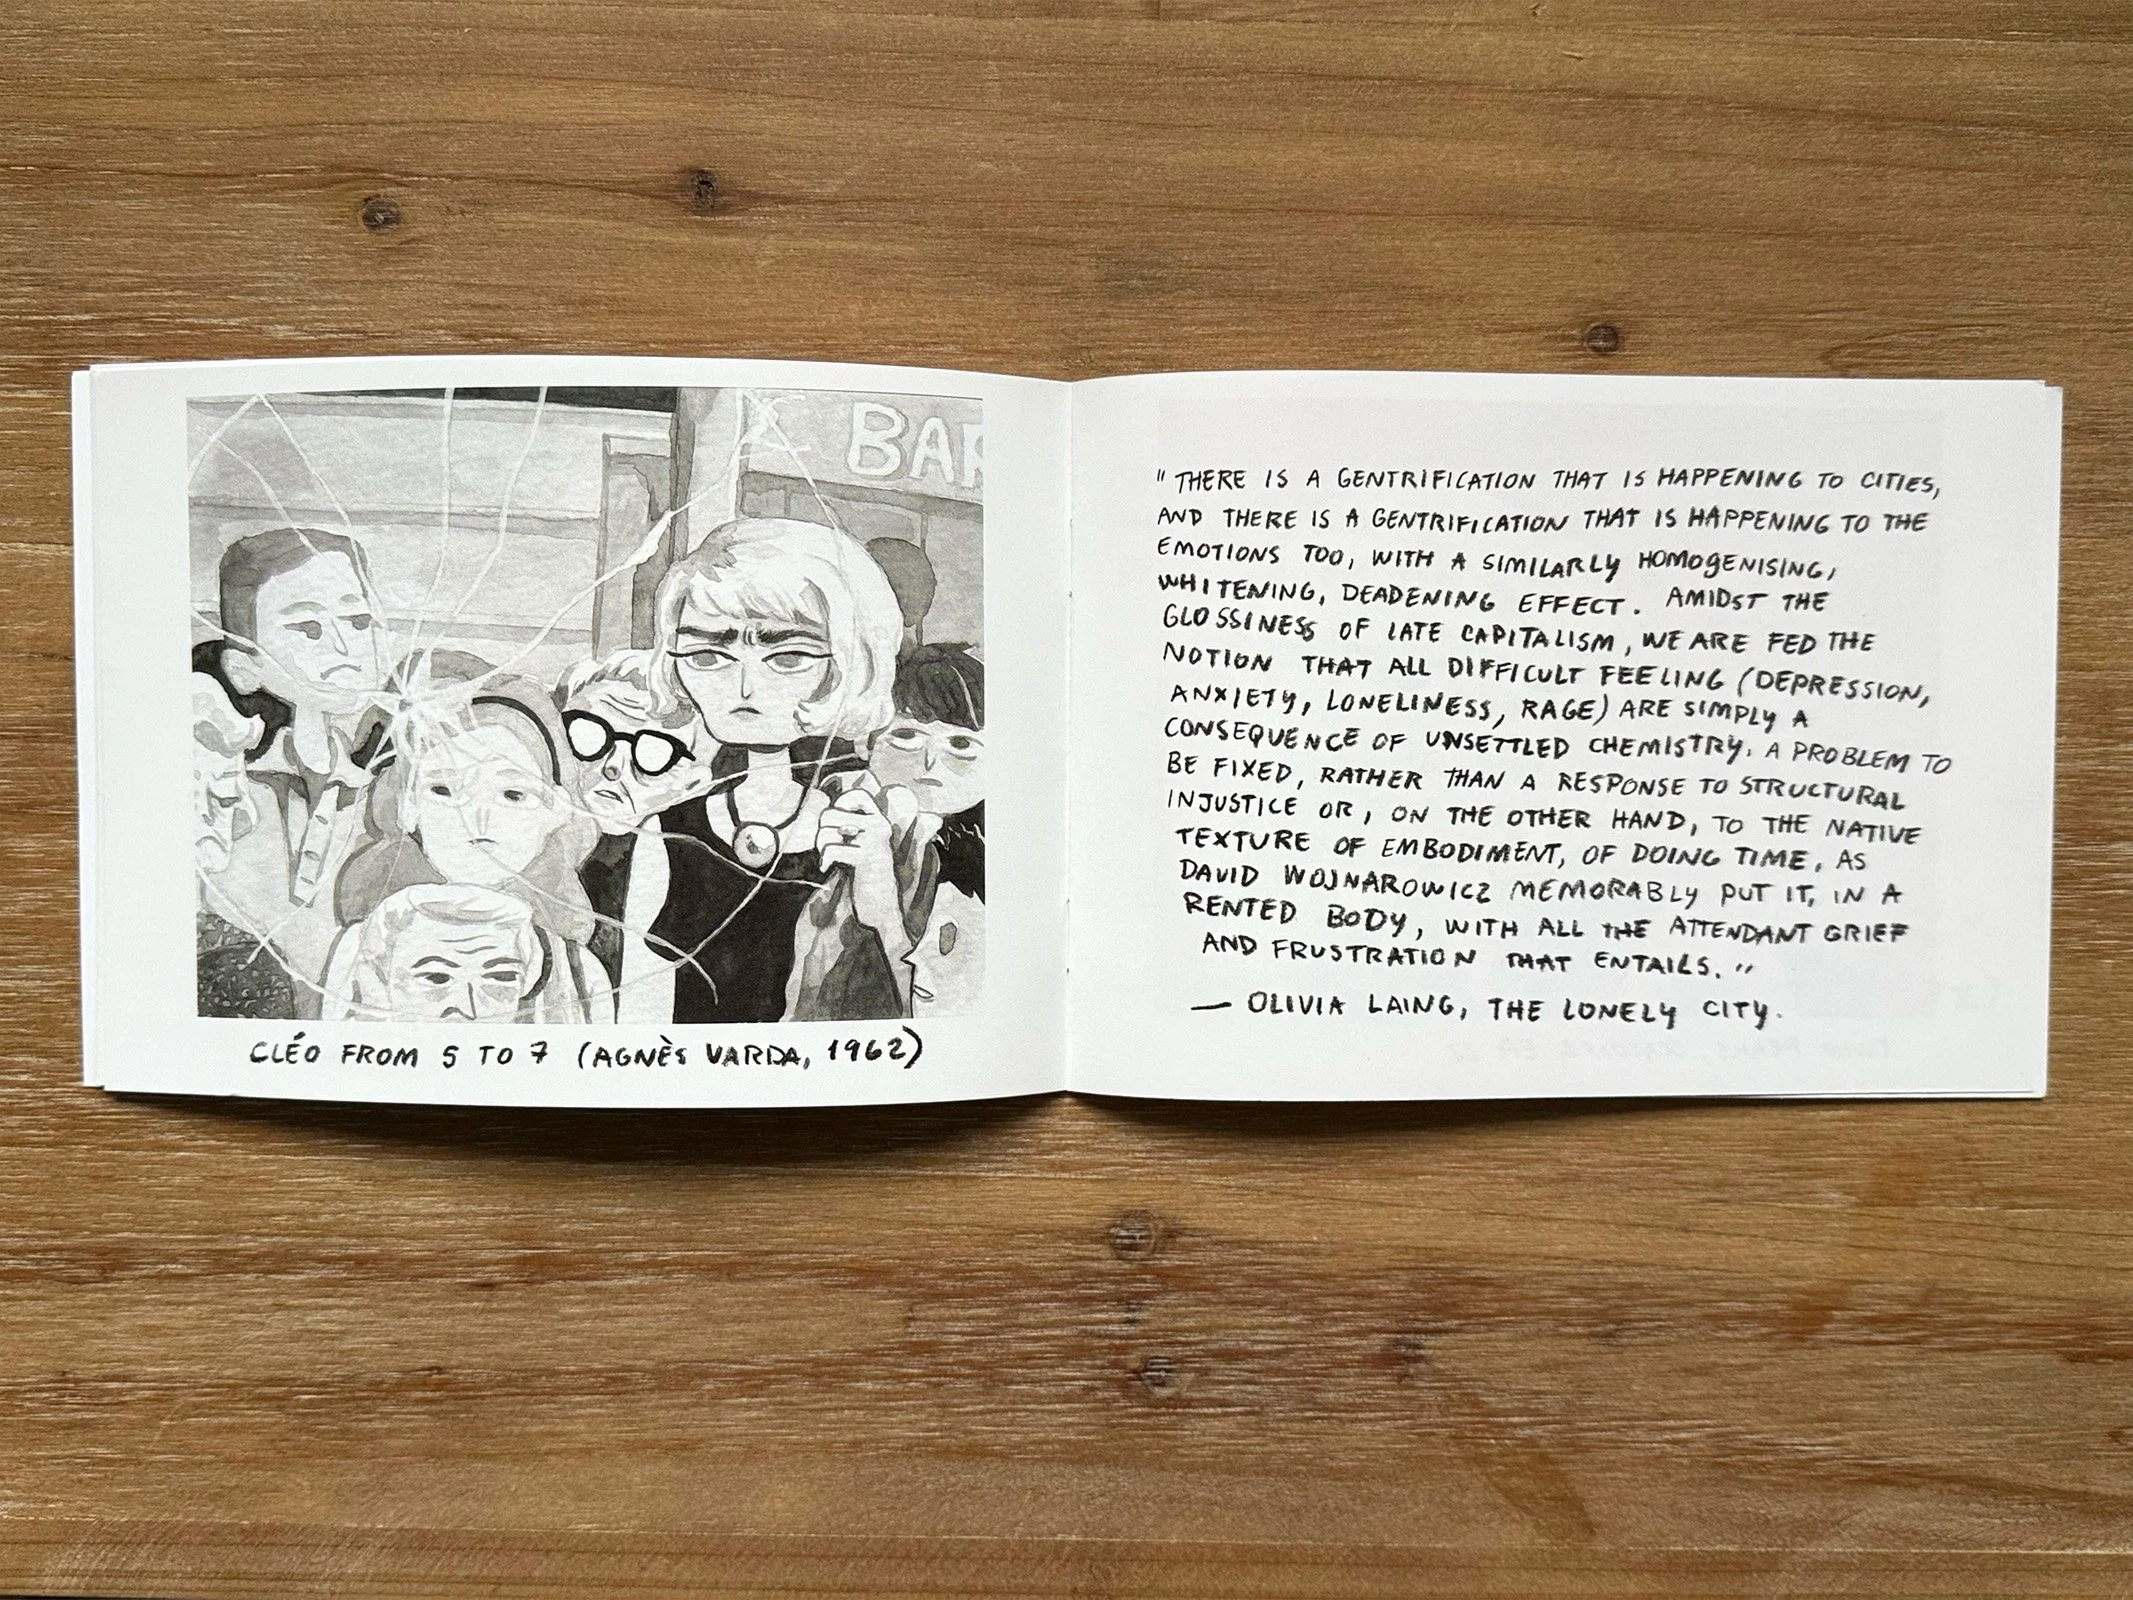 BAR
CLÉO FROM 5 TO 7 (AGNÈS VARDA, 1962)
"THERE IS A GENTRIFICATION THAT IS HAPPENING TO CITIES,
AND THERE IS A GENTRIFICATION THAT IS HAPPENING TO THE
EMOTIONS TOO, WITH A SIMILARLY HOMOGENISING,
WHITENING, DEADENING EFFECT. AMIDST THE
GLOSSINESS OF LATE CAPITALISM, WE ARE FED THE
NOTION THAT ALL DIFFICULT FEELING (DEPRESSION,
ANXIETY, LONELINESS, RAGE) ARE SIMPLY A
CONSEQUENCE OF UNSETTLED CHEMISTRY, A PROBLEM TO
BE FIXED, RATHER THAN A RESPONSE TO STRUCTURAL
INJUSTICE OR, ON THE OTHER HAND, TO THE NATIVE
TEXTURE OF EMBODIMENT, OF DOING TIME, AS
DAVID WOJNAROWICZ MEMORABLY PUT IT, IN A
RENTED BODY, WITH ALL THE ATTENDANT GRIEF
AND FRUSTRATION THAT ENTAILS."
— OLIVIA LAING, THE LONELY CITY.